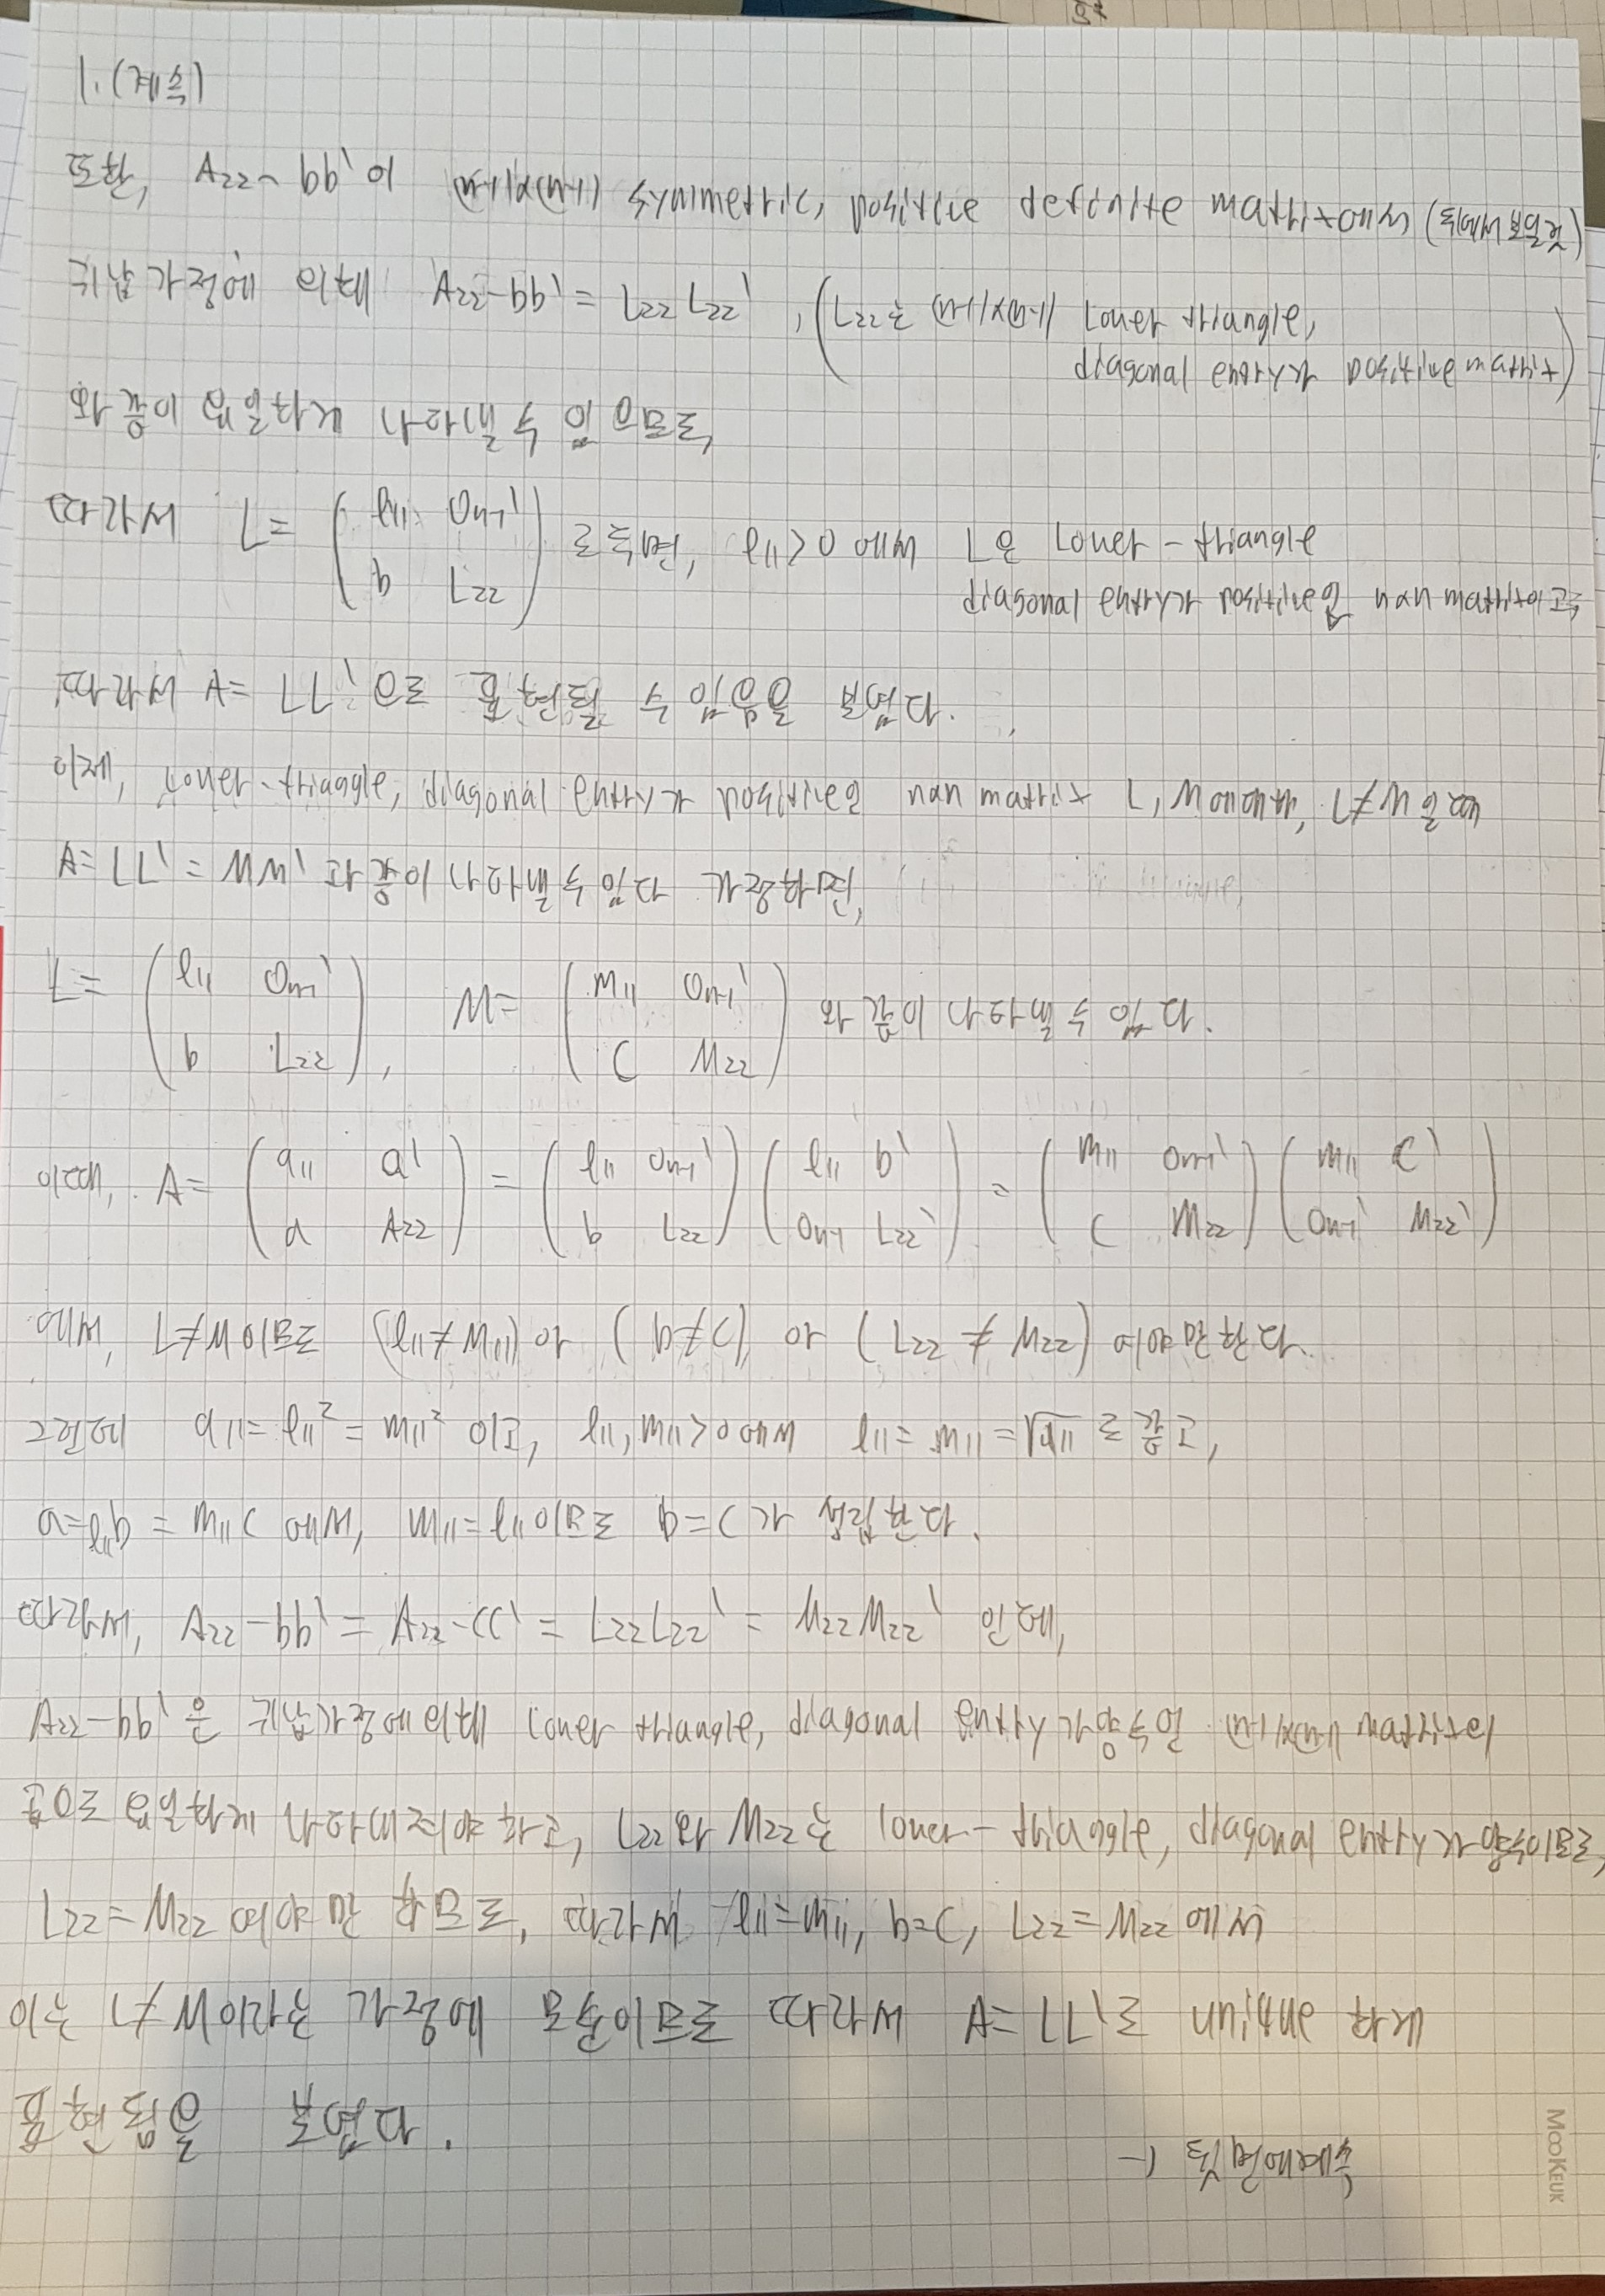 1. (계속)
또한, A22 - bb' 이 (n-1)x(n-1) symmetric, positive definite matrix에서 (뒤에서 보일 것)
귀납가정에 의해 A22-bb' = L22 L22', (L22는 (n-1)x(n-1) Lower triangle,
diagonal entry가 positive matrix)
와 같이 유일하게 나타낼 수 있으므로,
따라서 L = ( l11 0n-1' ) 로 두면, l11>0 에서 L은 Lower - triangle
( b L22 ) diagonal entry가 positive인 nxn matrix이고
따라서 A = LL' 으로 표현될 수 있음을 보였다.
이제, Lower-triangle, diagonal entry가 positive인 nxn matrix L, M에 대해, L≠M 일 때
A = LL' = MM' 과 같이 나타낼 수 있다 가정하면,
L = ( l11 0n-1' ), M = ( m11 0n-1' ) 와 같이 나타낼 수 있다.
( b L22 ) ( c M22 )
이때, A = ( a11 a' ) = ( l11 0n-1' ) ( l11 b' ) = ( m11 0n-1' ) ( m11 c' )
( a A22 ) ( b L22 ) ( 0n-1 L22' ) ( c M22 ) ( 0n-1' M22' )
에서, L≠M 이므로 (l11≠m11) or (b≠c) or (L22 ≠ M22) 이어야만 한다.
그런데 a11 = l11² = m11² 이고, l11, m11>0 에서 l11 = m11 = √a11 로 같고,
a = l11b = m11c 에서, m11 = l11 이므로 b=c가 성립한다.
따라서, A22-bb' = A22-cc' = L22L22' = M22M22' 인데,
A22-bb' 은 귀납가정에 의해 lower triangle, diagonal entry가 양수인 (n-1)x(n-1) matrix의
곱으로 유일하게 나타내져야 하고, L22와 M22는 lower-triangle, diagonal entry가 양수이므로,
L22 = M22 여야만 하므로, 따라서 l11=m11, b=c, L22=M22 에서
이는 L≠M이라는 가정에 모순이므로 따라서 A = LL'로 unique 하게
표현됨을 보였다.
→ 뒷면에 계속
MOOKEUK